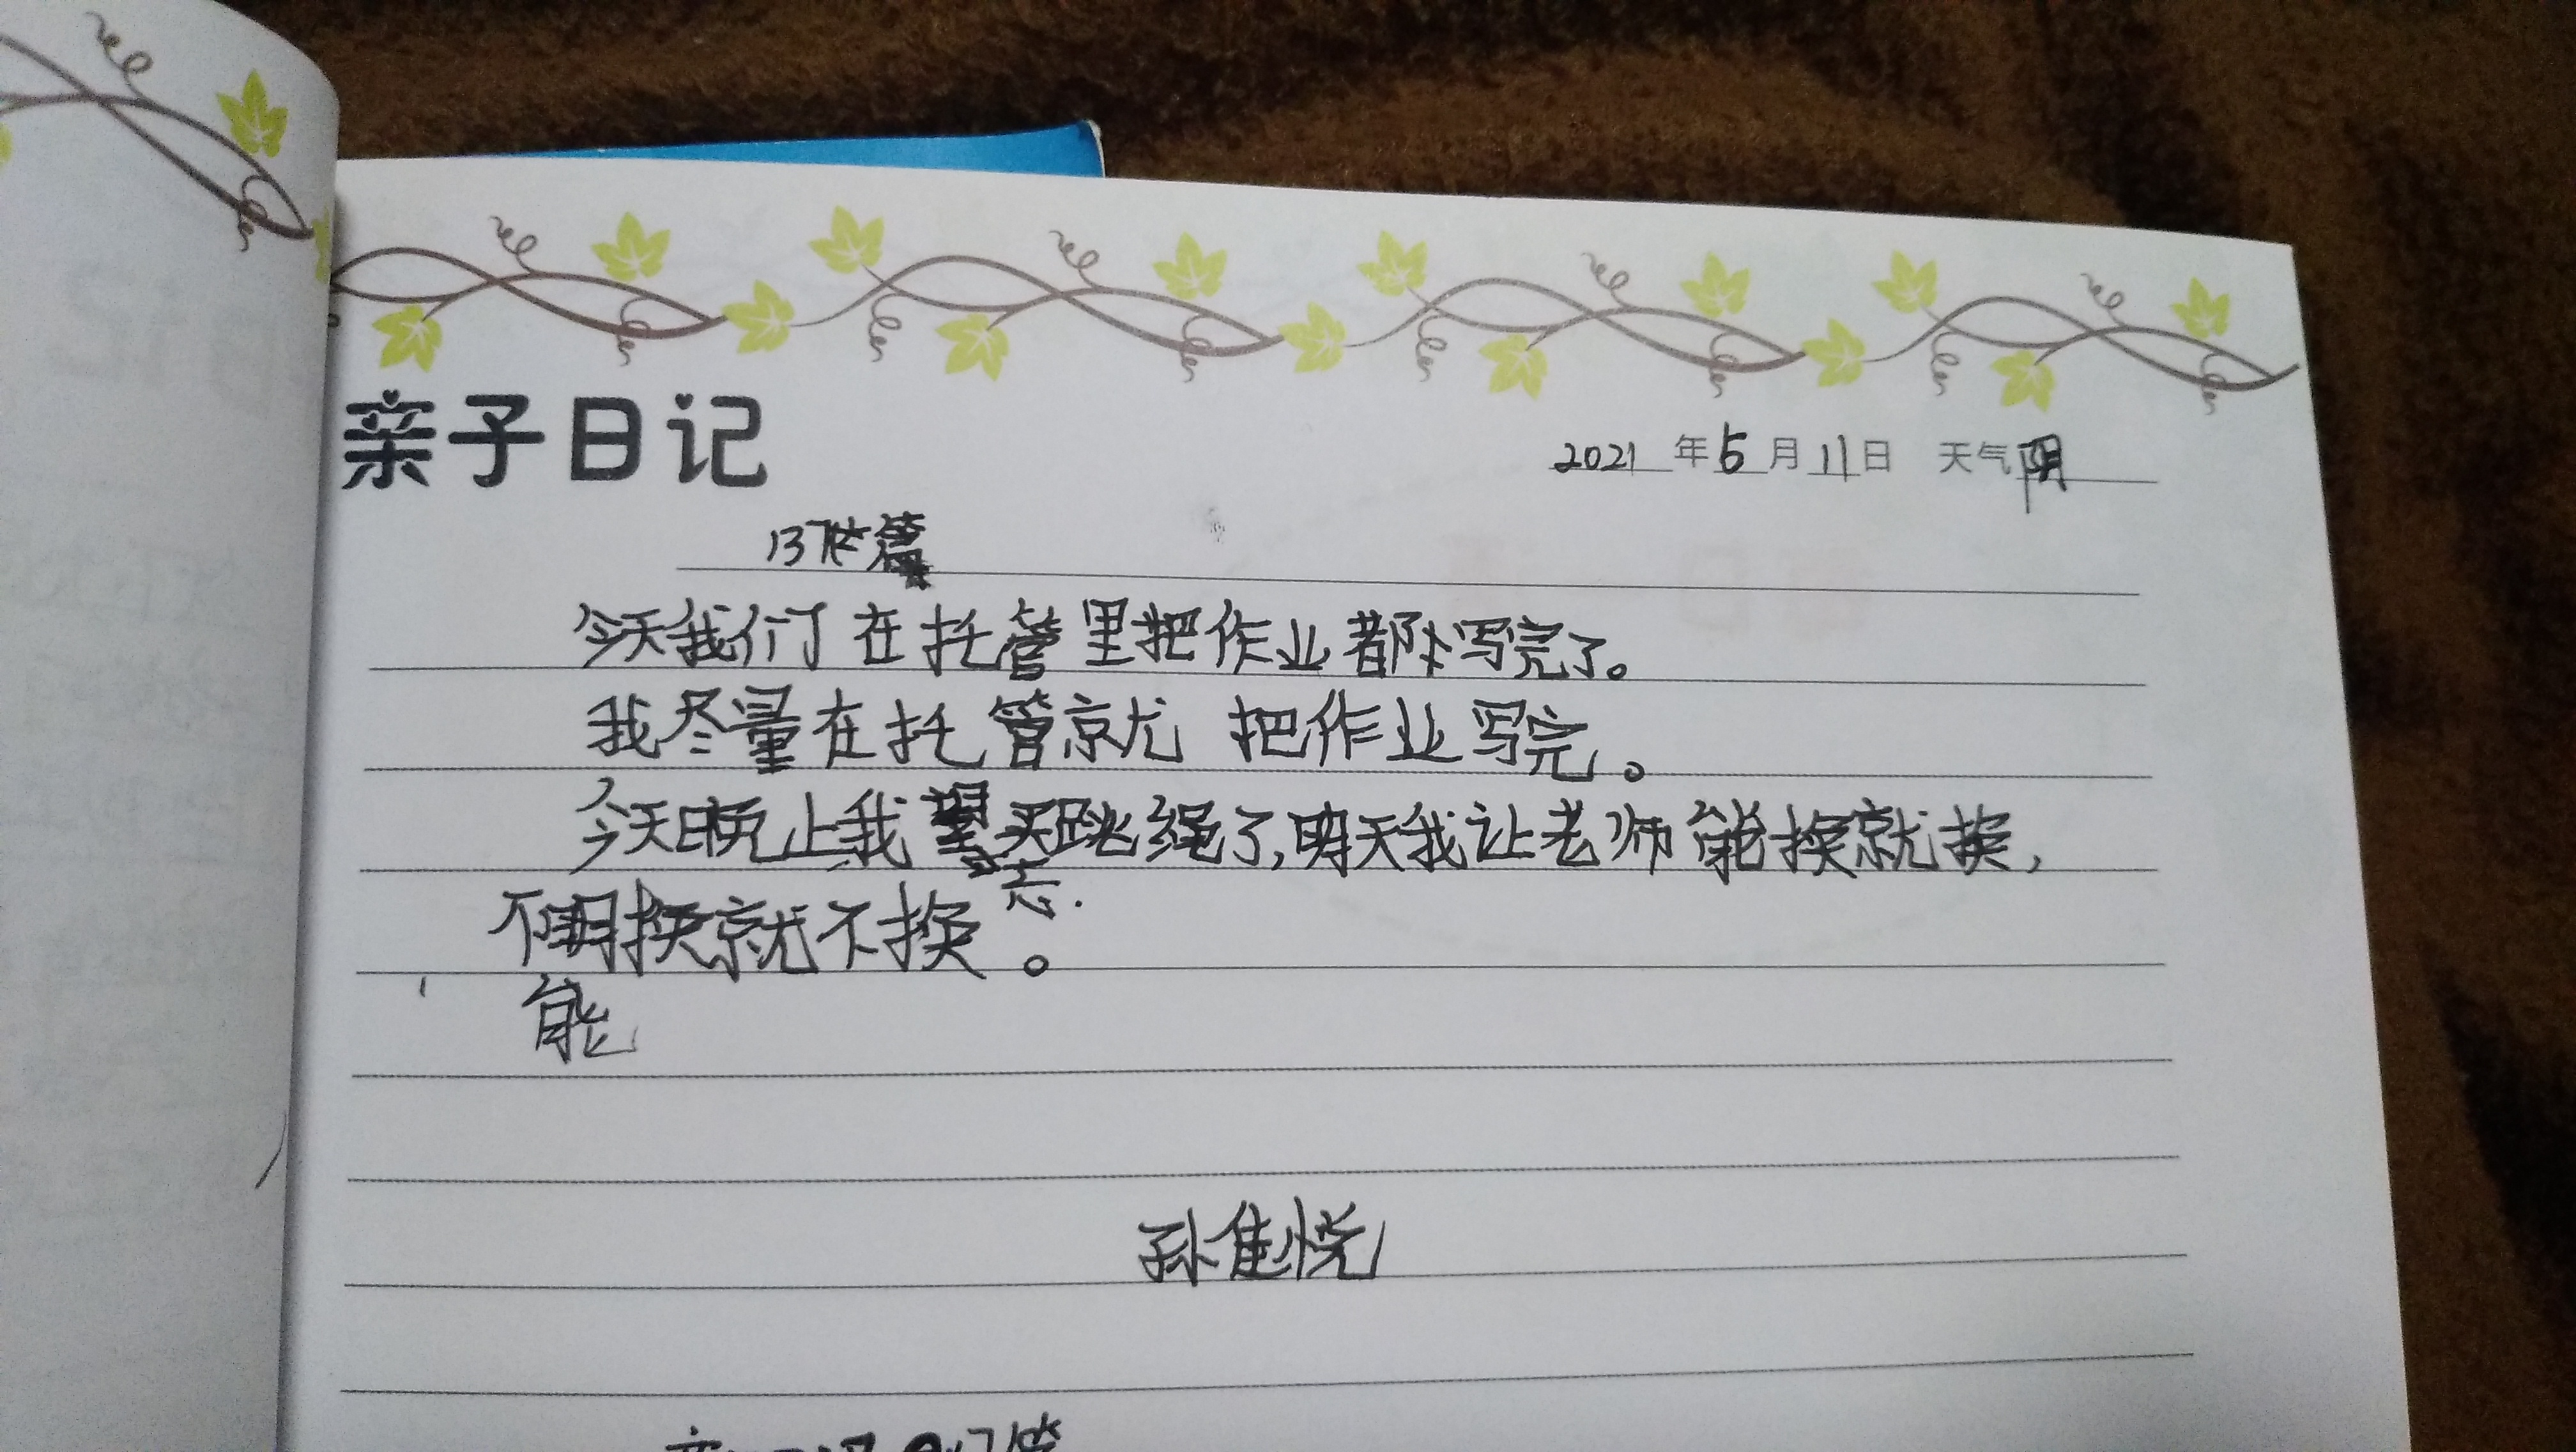 亲子日记
2021年5月11日 天气阴
137篇
今天我们在托管里把作业都写完了。
我尽量在托管就把作业写完。
今天晚上我买跳绳了,明天我让老师能换就换,
忘.
不换就不换。
能
孙佳悦
亲子日记